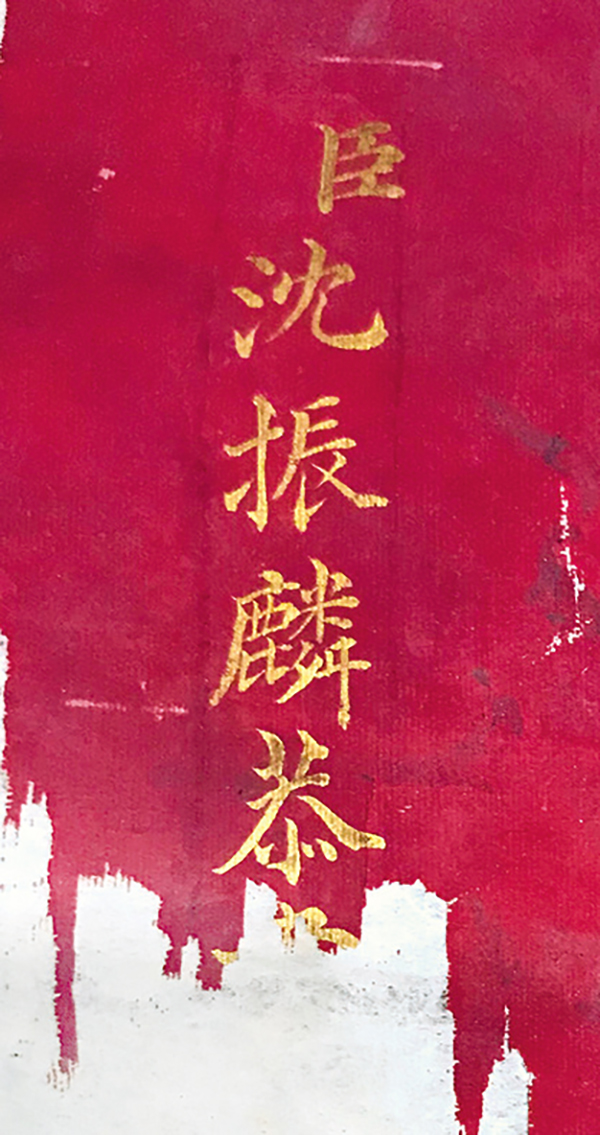 臣沈振麟恭